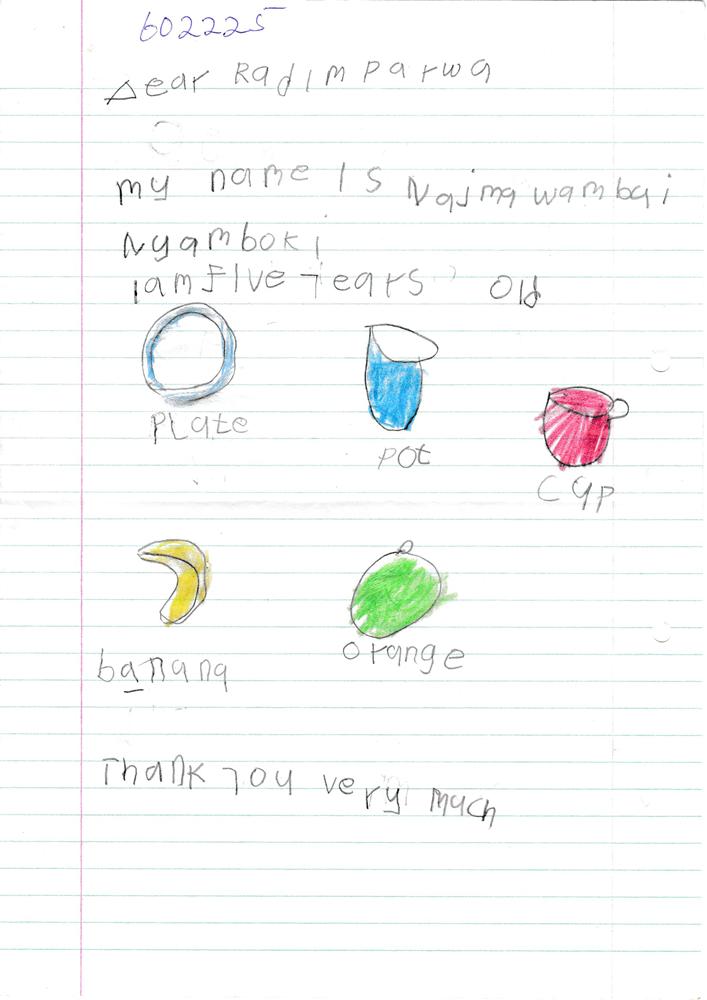 602225
Dear Radim parwa
my name Is Najma wambui
Nyamboki
I am Five Years Old
PLate
Pot
Cup
banana
orange
Thank you very much